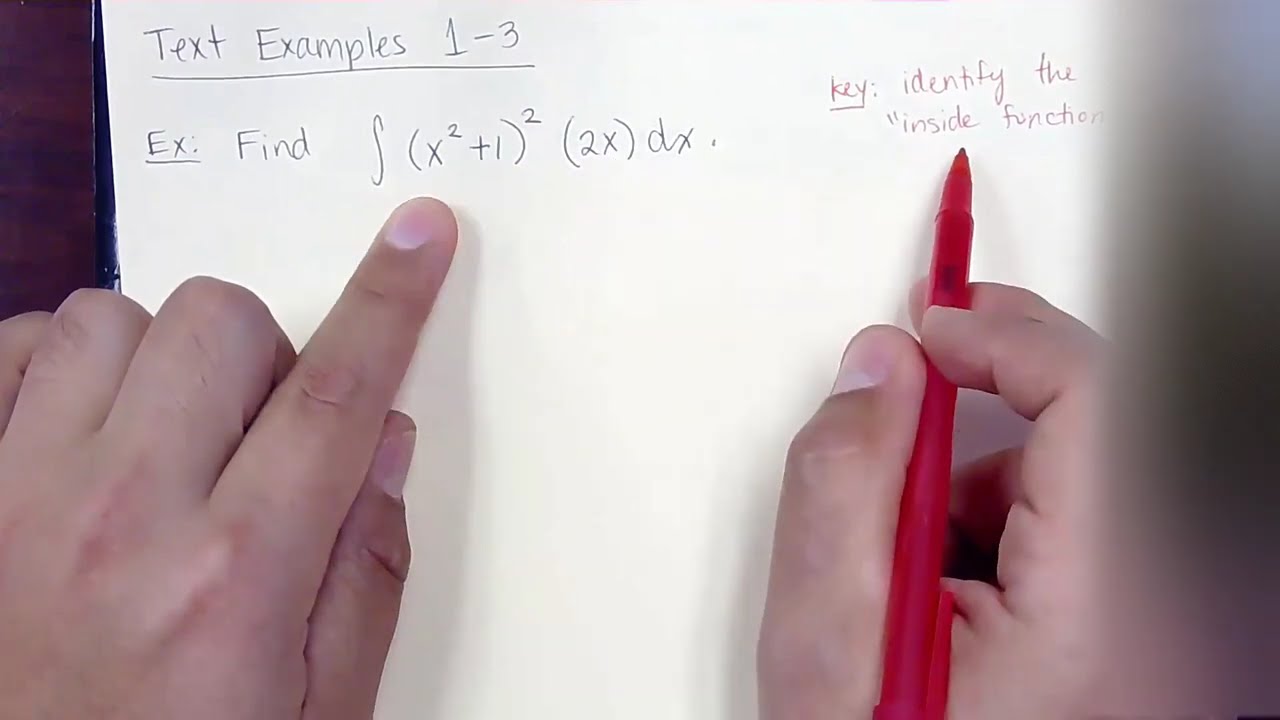 Text Examples 1-3
key: identify the
"inside function
Ex: Find ∫ (x²+1)² (2x) dx.